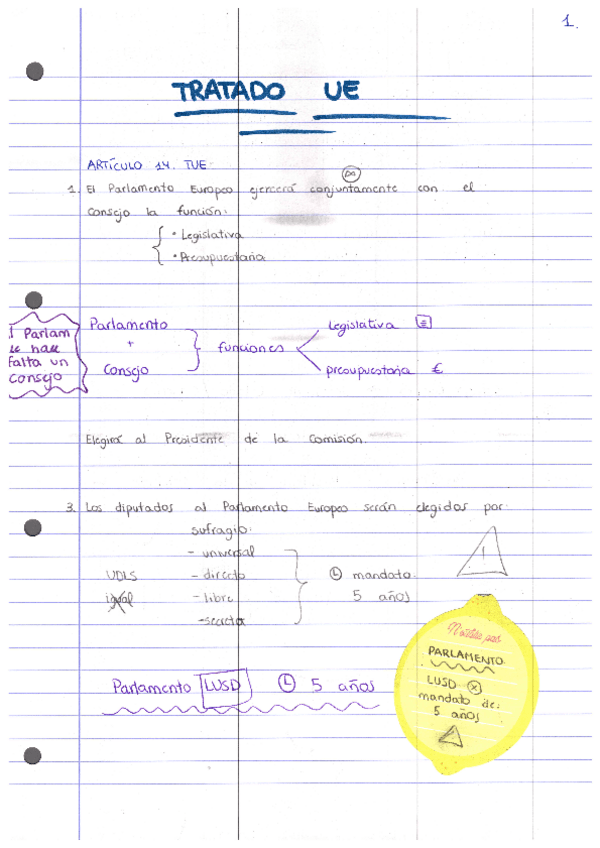 1.
TRATADO UE
ARTÍCULO 14. TUE
1. El Parlamento Europeo ejercerá conjuntamente con el
Consejo la función:
• Legislativa
• Presupuestaria
Parlam
hace
falta un
consejo
Parlamento
+
Consejo
funciones
legislativa
presupuestaria €
Elegirá al Presidente de la Comisión.
3. Los diputados al Parlamento Europeo serán elegidos por
sufragio:
- universal
- directo
- libre
- secreto
UDLS
igual
mandato
5 años
!
Parlamento LUSD 5 años
PARLAMENTO
LUSD
mandato de
5 años